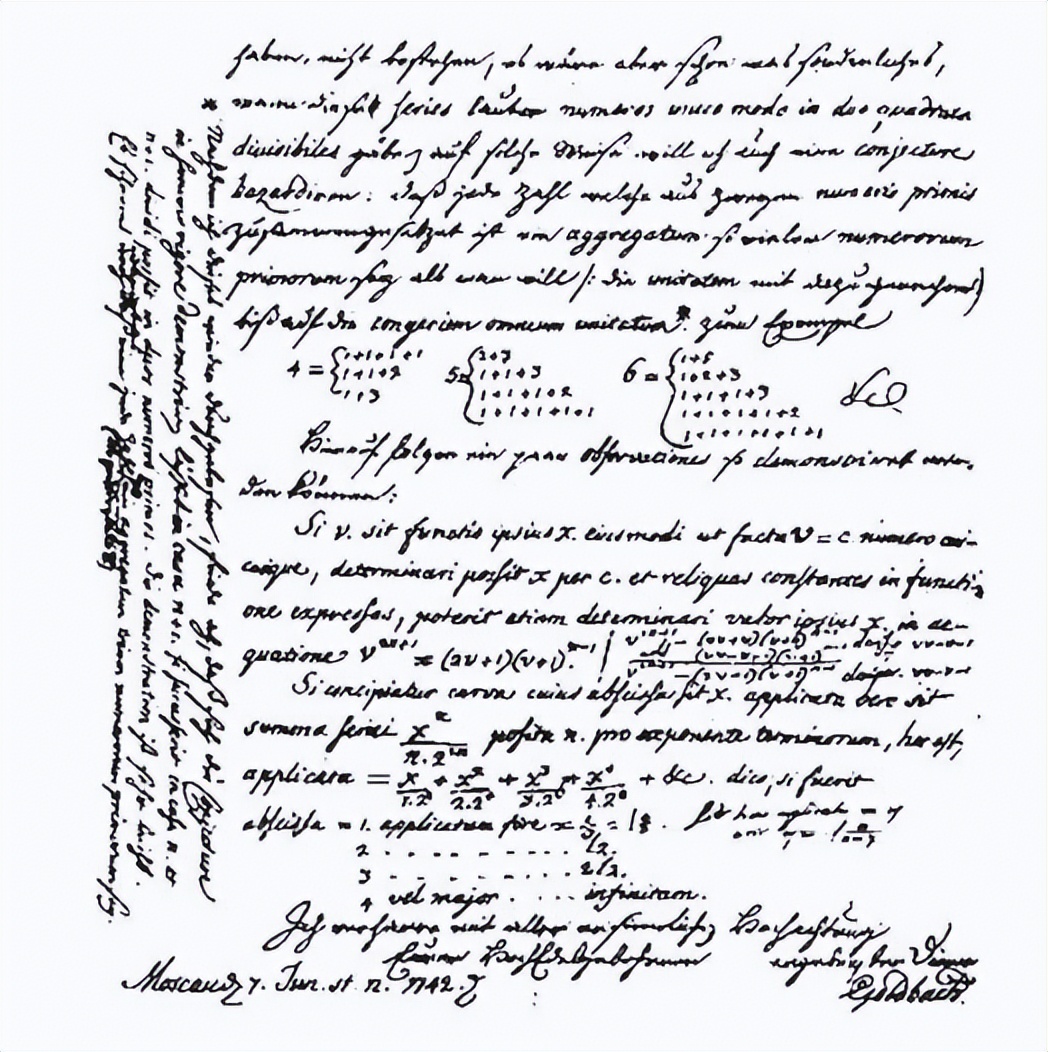 haben, nicht bestehen, es wäre aber schon was sonderliches,
series lauter numeros unico modo in duo quadrata
divisibiles gäbe auf solche Weise will ich auch eine conjecture
hazardiren: daß jede Zahl welche aus zweyen numeris primis
zusammengesetzet ist ein aggregatum so vieler numerorum
primorum sey als man will /: die unitatem mit dazu gerechnet)
biß auf die congeriem omnium unitatum * zum Exempel
4 = { 1+1+1+1
1+1+2
1+3
5 = { 2+3
1+1+3
1+1+1+2
1+1+1+1+1
6 = { 1+5
1+2+3
1+1+1+3
1+1+1+1+2
1+1+1+1+1+1
&c
Hierauf folgen ein paar observationes so demonstriret wer-
den können:
Si v. sit functio ipsius x. eiusmodi ut facta v = c numero cui-
cunque, determinari possit x per c. et reliquas constantes in functi-
one expressas, poterit etiam determinari valor ipsius x. in ae-
quatione v^{2n+1} = (2v+1)(v+1)^{n-1}
Si concipiatur curva cuius abscissa sit x. applicata vero sit
summa seriei x^n / n.2^{2n} posita n. pro exponente terminorum, hoc est,
applicata = x/1.2 + x²/2.2 + x³/3.2 + x⁴/4.2 + &c. dico, si fuerit
abscissa = 1. applicatam fore = l 4/3.
2 . . . . . . . . . l2.
3 . . . . . . . . . 2l2.
4 vel major . . . . infinitam.
Ich verharre mit aller Hochachtung
Eurer HochEdelgebohrnen ergebenster Diener
Moscau 7. Jun. st. n. 1742. Goldbach.
* Nachdem ich dieses wieder durchgelesen, finde ich, daß sich die Conjecture
in summo rigore demonstriren läßet in casu n+1. si successerit in casu n. et
n+1. dividi possit in duos numeros primos. Die demonstration ist sehr leicht.
Es scheinet daß eine jede Zahl ein aggregatum trium numerorum primorum sey.